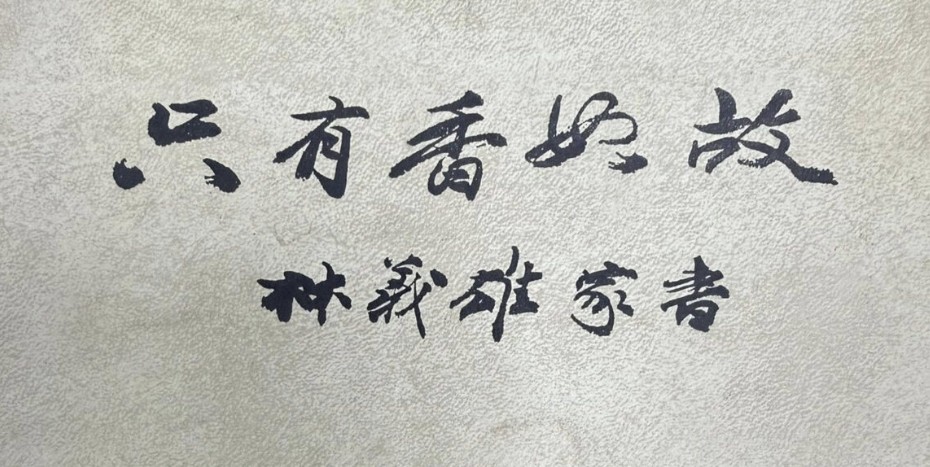 只有香如故
林義雄家書